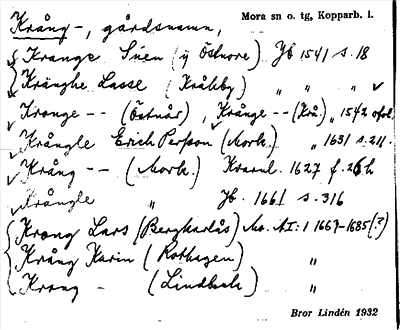 Krång-, gårdsnamn,
Mora sn o. tg, Kopparb. l.
Krange Suen (y Östnore) Jb 1541 s. 18
Krånghe Lasse (Kråkby) " " " 
Krange -- (Östnår), Krånge -- (Krå.) " 1542
Krångle Erich Persson (Mork.) " 1631 s. 211.
Krång -- (Mork. Kvarnl. 1627 f. 26 h
Krångle " Jb. 1661 s. 316
Krång Lars (Bergkarlås) Mo. AI: 1 1667-1685 (?)
Krång Karin (Rothagen) "
Krång - (Lindbak) "
Bror Lindén 1932